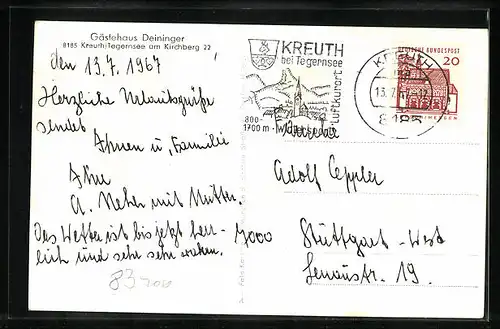 Gästehaus Deininger
8185 Kreuth/Tegernsee am Kirchberg 22
den 13.7.1967
Herzliche Urlaubsgrüße
sendet
Ihnen u. Familie
Ihre
A. Neher mit Mutter.
Das Wetter ist bis jetzt herr-
lich und sehr sehr
KREUTH
bei Tegernsee
Luftkurort
800-
1700 m
KREUTH
13.7.
8185
DEUTSCHE BUNDESPOST
20
Adolf
7000
Stuttgart-West
Lenaustr. 19.
83